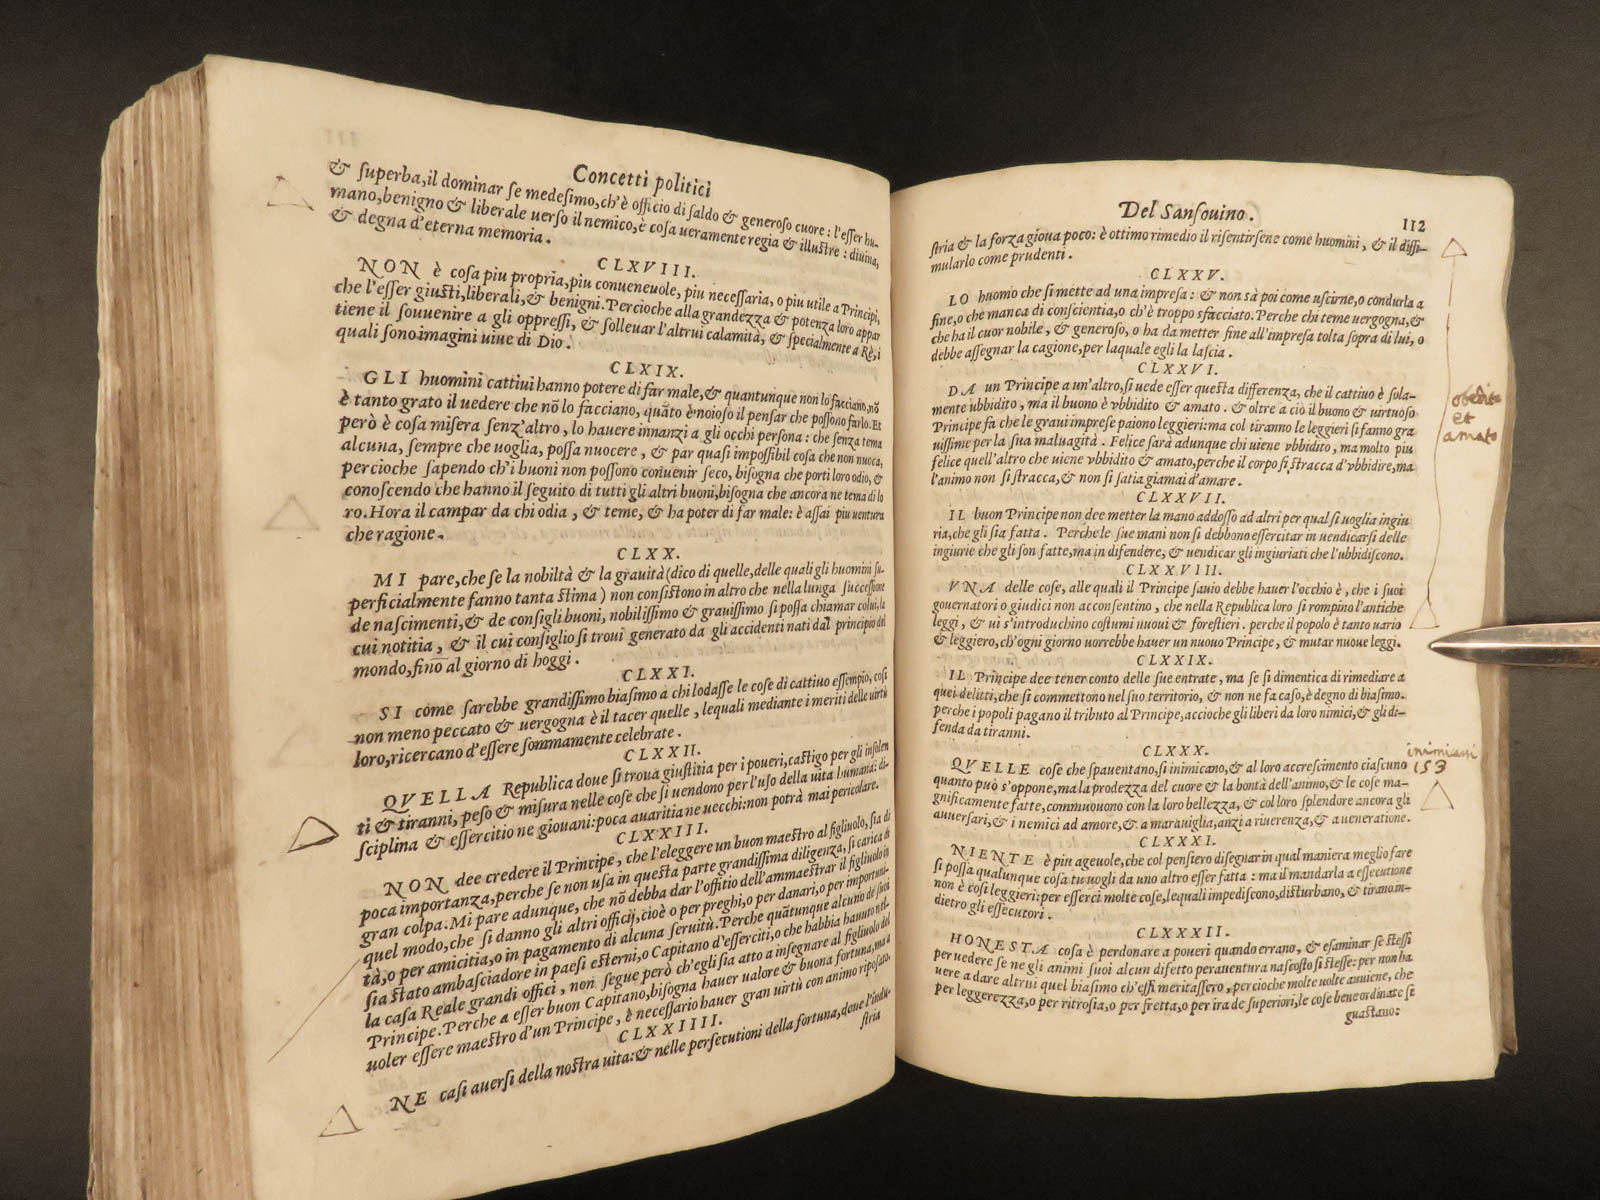 Concetti politici
& ſuperba,il dominar ſe medeſimo,ch'è officio di ſaldo & generoſo cuore : l'eſſer hu-
mano,benigno & liberale uerſo il nemico,è coſa ueramente regia & illuſtre : diuina,
& degna d'eterna memoria.
CLXVIII.
NON è coſa piu propria,piu conueneuole, piu neceſſaria, o piu utile a Principi,
che l'eſſer giuſti,liberali,& benigni.Percioche alla grandezza & potenza loro appar
tiene il ſouuenire a gli oppreſſi, & ſolleuar l'altrui calamità, & ſpecialmente a Rè,i
quali ſono imagini uiue di Dio.
CLXIX.
GLI huomini cattiui hanno potere di far male,& quantunque non lo facciano,nō
è tanto grato il uedere che nō lo facciano, quāto è noioſo il penſar che poſſono farlo.Et
però è coſa miſera ſenz'altro, lo hauere innanzi a gli occhi perſona : che ſenza tema
alcuna, ſempre che uoglia, poſſa nuocere, & par quaſi impoſſibil coſa che non nuoca,
percioche ſapendo ch'i buoni non poſſono conuenir ſeco, biſogna che porti loro odio, &
conoſcendo che hanno il ſeguito di tutti gli altri buoni,biſogna che ancora ne tema di lo
ro.Hora il campar da chi odia, & teme, & ha poter di far male: è aſſai piu uentura
che ragione.
CLXX.
MI pare,che ſe la nobiltà & la grauità (dico di quelle,delle quali gli huomini ſu-
perficialmente fanno tanta ſtima) non conſiſtono in altro che nella lunga ſucceſſione
de naſcimenti,& de conſigli buoni, nobiliſſimo & grauiſſimo ſi poſſa chiamar colui,la
cui notitia, & il cui conſiglio ſi troui generato da gli accidenti nati dal principio del
mondo,fino al giorno di hoggi.
CLXXI.
SI come ſarebbe grandiſſimo biaſimo a chi lodaſſe le coſe di cattiuo eſſempio, coſi
non meno peccato & uergogna è il tacer quelle, lequali mediante i meriti delle uirtù
loro,ricercano d'eſſere ſommamente celebrate.
CLXXII.
QVELLA Republica doue ſi troua giuſtitia per i poueri,caſtigo per gli inſolen
ti & tiranni, peſo & miſura nelle coſe che ſi uendono per l'uſo della uita humana: di-
ſciplina & eſſercitio ne giouani:poca auaritia ne uecchi:non potrà mai pericolare.
CLXXIII.
NON dee credere il Principe, che l'eleggere un buon maeſtro al figliuolo, ſia di
poca importanza,perche ſe non uſa in queſta parte grandiſſima diligenza, ſi carica di
gran colpa.Mi pare adunque, che nō debba dar l'offitio dell'ammaeſtrar il figliuolo in
quel modo,che ſi danno gli altri officij,cioè o per preghi,o per danari,o per importuni-
tà,o per amicitia,o in pagamento di alcuna ſeruitù.Perche quātunque alcuno de ſuoi
ſia ſtato ambaſciadore in paeſi eſterni,o Capitano d'eſſerciti,o che habbia hauuto nel-
la caſa Reale grandi offici, non ſegue però ch'egli ſia atto a inſegnare al figliuolo del
Principe.Perche a eſſer buon Capitano,biſogna hauer ualore & buona fortuna,ma a
uoler eſſere maeſtro d'un Principe, è neceſſario hauer gran uirtù con animo ripoſato.
CLXXIIII.
NE caſi auerſi della noſtra uita:& nelle perſecutioni della fortuna,doue l'indu-
ſtria
Del Sanſouino.
112
ſtria & la forza gioua poco: è ottimo rimedio il riſentirſene come huomini, & il diſſi-
mularlo come prudenti.
CLXXV.
LO huomo che ſi mette ad una impreſa: & non sà poi come uſcirne,o condurla a
fine,o che manca di conſcientia,o ch'è troppo sfacciato.Perche chi teme uergogna,&
che ha il cuor nobile, & generoſo, o ha da metter fine all'impreſa tolta ſopra di lui, o
debbe aſſegnar la cagione,per laquale egli la laſcia.
CLXXVI.
DA un Principe a un'altro,ſi uede eſſer queſta differenza, che il cattiuo è ſola-
mente ubbidito, ma il buono è vbbidito & amato. & oltre a ciò il buono & uirtuoſo
Principe fa che le graui impreſe paiono leggieri:ma col tiranno le leggieri ſi fanno gra
uiſſime per la ſua maluagità. Felice ſarà adunque chi uiene vbbidito, ma molto piu
felice quell'altro che uiene vbbidito & amato,perche il corpo ſi ſtracca d'vbbidire,ma
l'animo non ſi ſtracca,& non ſi ſatia giamai d'amare.
obedito
et
amato
CLXXVII.
IL buon Principe non dee metter la mano addoſſo ad altri per qual ſi uoglia ingiu
ria,che gli ſia fatta. Perche le ſue mani non ſi debbono eſſercitar in uendicarſi delle
ingiurie che gli ſon fatte,ma in difendere, & uendicar gli ingiuriati che l'ubbidiſcono.
CLXXVIII.
VNA delle coſe, alle quali il Principe ſauio debbe hauer l'occhio è, che i ſuoi
gouernatori o giudici non acconſentino, che nella Republica loro ſi rompino l'antiche
leggi, & ui s'introduchino coſtumi nuoui & foreſtieri. perche il popolo è tanto uario
& leggiero,ch'ogni giorno uorrebbe hauer un nuouo Principe, & mutar nuoue leggi.
CLXXIX.
IL Principe dee tener conto delle ſue entrate, ma ſe ſi dimentica di rimediare a
quei delitti,che ſi commettono nel ſuo territorio, & non ne fa caſo,è degno di biaſimo.
perche i popoli pagano il tributo al Principe,accioche gli liberi da loro nimici,& gli di-
fenda da tiranni.
CLXXX.
QVELLE coſe che ſpauentano,ſi inimicano,& al loro accreſcimento ciaſcuno
quanto può s'oppone,ma la prodezza del cuore & la bontà dell'animo,& le coſe ma-
gnificamente fatte, commuouono con la loro bellezza, & col loro ſplendore ancora gli
auuerſari,& i nemici ad amore,& a marauiglia,anzi a riuerenza,& a ueneratione.
153
CLXXXI.
NIENTE è piu ageuole,che col penſiero diſegnar in qual maniera meglio fare
ſi poſſa qualunque coſa tu uogli da uno altro eſſer fatta : ma il mandarla a eſſecutione
non è coſi leggieri:per eſſerci molte coſe,lequali impediſcono,diſturbano, & tirano in-
dietro gli eſſecutori.
CLXXXII.
HONESTA coſa è perdonare a poueri quando errano, & eſaminar ſe ſteſſi
per uedere ſe ne gli animi ſuoi alcun difetto perauentura naſcoſto ſi ſteſſe: per non ha
uere a dare altrui quel biaſimo ch'eſſi meritaſſero, percioche molte uolte auuiene, che
per leggerezza,o per ritroſia,o per fretta,o per ira de ſuperiori,le coſe bene ordinate ſi
guaſtano: